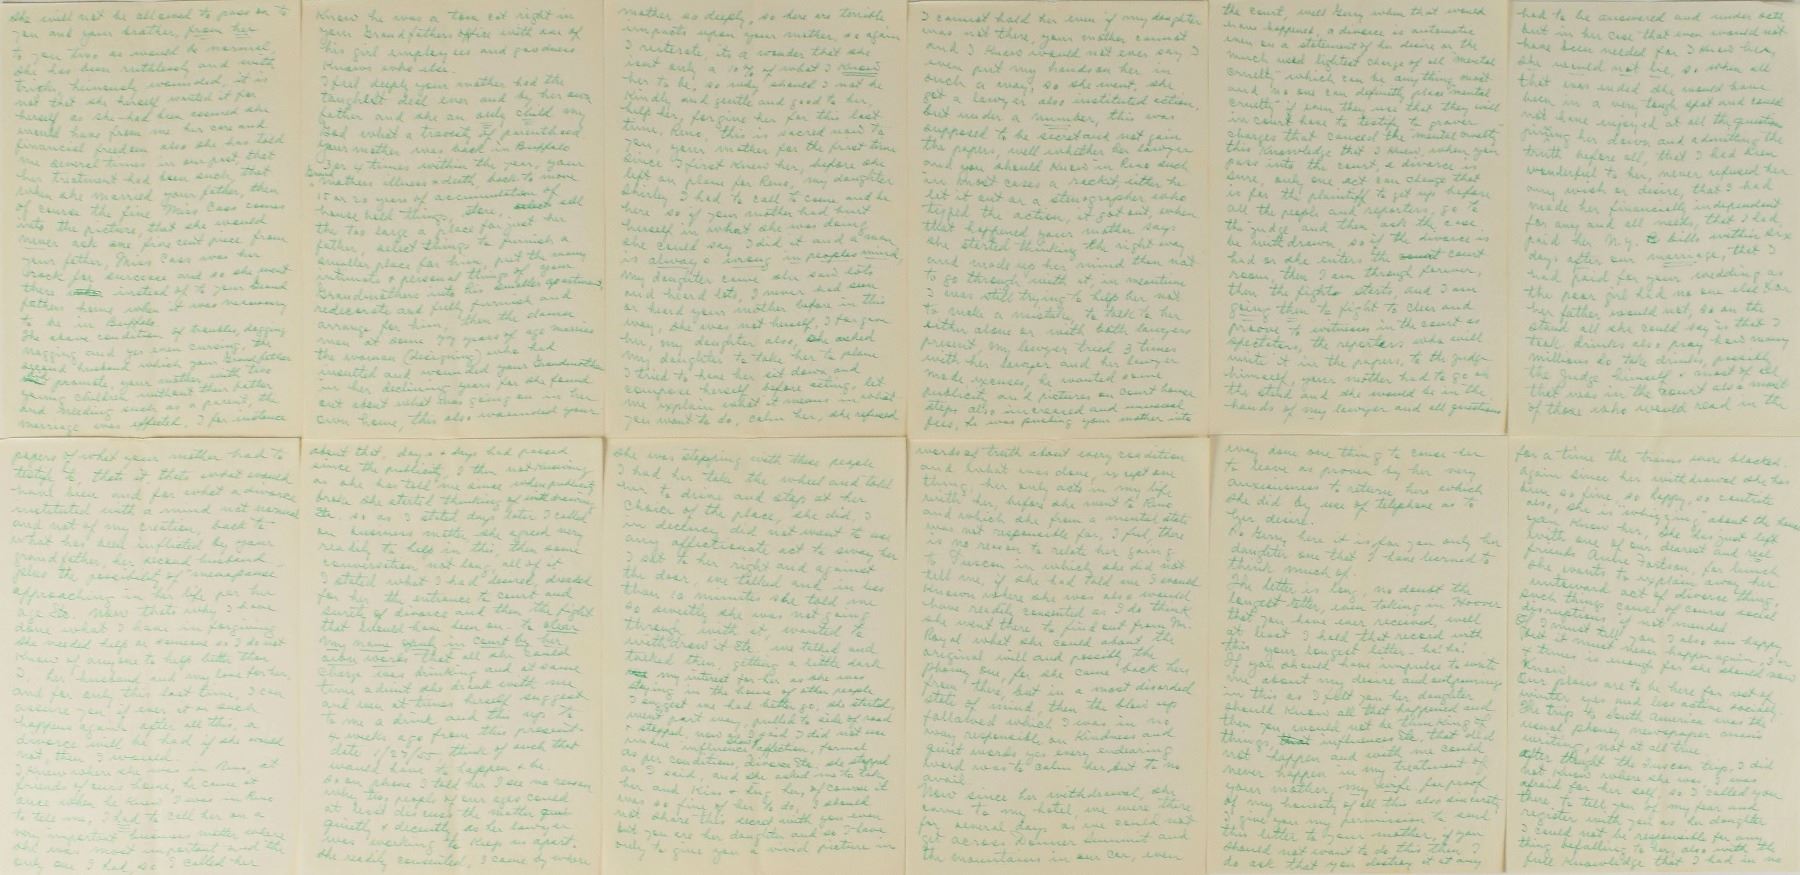 she will not be allowed to pass on to
you and your brother, from her
to you two as would be normal,
she has been ruthlessly and with
truth, heinously wounded, it is
not that she herself wanted it for
herself as she had been assured she
would have from me her care and
financial freedom also she has told
me several times in our past, that
her treatment had been such, that
when she married your father, then
of course the fine Miss Cass comes
into the picture, that she would
never ask one five cent piece from
your father, Miss Cass was her
rock for surcease and so she went
there instead of to your Grand
fathers home when it was necessary
to be in Buffalo.
The above condition of troubles, digging
nagging and yes even cursing, the
second husband which your Grandfather
did promote, your mother with two
young children without their father
and needing such as a parent, the
marriage was effected. I for instance
know he was a tom cat right in
your Grandfathers office with one of
his girl employees and goodness
knows who else.
I feel deeply your mother had the
toughest deal ever and by her own
father and she an only child my
God what a travesty of parenthood.
Your mother was back in Buffalo
3 or 4 times within the year, your
Grand mothers illness & death, back to move
15 or 20 years of accumulation of
house hold things, store, sell
the too large a place for just her
father, select things to furnish a
smaller place for him, put the many
intimate & personal things of your
Grandmothers into his smaller apartment,
redecorate and fully furnish and
arrange for him, then the damn
man at some 77 years of age marries
the woman (designing) who had
insulted and wounded your Grandmother
in her declining years for she found
out about what was going on in her
own home, this also wounded your
mother so deeply, so here are terrible
impacts upon your mother, so again
I reiterate, it's a wonder that she
isnt only a 10% of what I know
her to be, so why should I not be
kindly and gentle and good to her,
help her, forgive her for this last
time, Reno, this is sacred now to
you, your mother for the first time
since I first knew her, before she
left on plane for Reno, my daughter
Shirley I had to call to come, and be
here so if your mother had hurt
herself in what she was doing
she could say I did it and a man
is always wrong in peoples mind,
my daughter came, she said lots
and heard lots, I never had seen
or heard your mother before in this
way, she was not herself, I forgave
her, my daughter also, she asked
my daughter to take her to plane
I tried to have her sit down and
compose herself before acting, let
me explain what it means in what
you want to do, calm her, she refused
I cannot hold her even if my daughter
was not there, your mother cannot
and I know would not ever say I
even put my hands on her in
such a way, so she went, she
got a lawyer also instituted action,
but under a number, this was
supposed to be secret and not gain
the papers, well whether her lawyer
and you should know in Reno such
in most cases a racket, either he
let it out or a stenographer who
typed the action, it got out, when
that happened your mother says
she started thinking the right way
and made up her mind then not
to go through with it, in meantime
I was still trying to help her not
to make a mistake, to talk to her
either alone or with both lawyers
present, my lawyer tried 3 times
with her lawyer and her lawyer
made excuses, he wanted some
publicity and pictures on court house
steps also increased and unusual
fees, he was pushing your mother into
the court, well Gerry when that would
have happened, a divorce is automatic
even on a statement of her desire or the
much used lightest charge of all mental
cruelty which can be anything most
and no one can definitely place "mental
cruelty" if even they use that they will
in court have to testify to graver
charges that caused the mental cruelty
this knowledge that I knew, when you
pass into the court, a divorce is
sure, only one act can change that
is for the plaintiff to get up before
all the people and reporters, go to
the judge and then ask the case
be withdrawn, so if the divorce is
had or she enters the court
room, then I am through forever,
then the fight starts, and I am
going then to fight to clear and
prove to witnesses in the court as
spectators, the reporters who will
write it in the papers, to the judge
himself, your mother had to go on
the stand and she would be in the
hands of my lawyer and all questions
had to be answered and under oath
but in her case that even would not
have been needed for I knew her,
she would not lie, so when all
that was ended she would have
been in a very tough spot and could
not have enjoyed at all the question
pinning her down and admitting the
truth before all, that I had been
wonderful to her, never refused her
any wish or desire, that I had
made her financially independent
for any and all needs, that I had
paid her N.Y. bills within six
days after our marriage, that I
had paid for your wedding as
the poor girl had no one else for
her father would not, so on the
stand all she could say is that I
took drinks also pray how many
millions do take drinks, possibly
the judge himself & most of all
that was in the court also most
of those who would read in the
papers of what your mother had to
testify to, thats it, thats what would
have been and for what a divorce
instituted with a mind not normal
and not of my creation, back to
what has been inflicted by your
grandfather, her second husband
plus the possibility of "menopause"
approaching in her life per her
age Etc. Now thats why I have
done what I have in forgiving
she needed help or someone so I do not
know of anyone to help better than
I, her husband and my love for her,
and for only this last time, I can
assure you if ever it or such
happens again after all this, a
divorce will be had if she would
not, then I would.
I knew where she was in Reno, at
friends of ours home, he came at
once when he knew I was in Reno
to tell me, I had to call her on a
very important business matter where
she was most important and the
only one I had, so I called her
about that, days & days had passed
since the publicity, I then not receiving
as she has told me since when publicity
broke she started thinking of withdrawing
Etc. so as I stated days later I called
on business matter, she agreed very
readily to help in this, then some
conversation not long, all of it
I stated what I had desired, decided
for her the entrance to court and
surety of divorce and then the fight
that would have been on - to clear
my name in court by her
own words that all she could
charge was drinking and at same
time admit she drank with me
and even at times herself suggest
to me a drink and this up to
4 weeks ago from this present
date 1/27/55 think of such that
would have to happen she.
So on phone I told her I see no reason
why two people of our ages could
at least discuss the matter
quietly & decently as her lawyer
was working to keep us apart.
She readily consented, I came by where
she was stopping with these people
I had her take the wheel and told
her to drive and stop at her
choice of the place, she did, I
in decency did not want to use
any affectionate act to sway her
I sat to her right and against
the door, we talked and in less
than 10 minutes she told me
so directly she was not going
through with it, wanted to
withdraw it Etc. we talked and
talked then, getting a little dark
my interest for her as she was
staying in the home of other people
I suggest we had better go, she started,
went part way, pulled to side of road
& stopped, now as I said I did not use
& more influence, affection, formal
as per conditions, divorce Etc. she stopped
as I said, and she asked me to take
her and kiss & hug her, of course it
was so fine of her to do, I should
not share this secret with you even
but you are her daughter and so I have
only to give you a vivid picture in
words of truth about every condition
and what was done, is yet one
thing, her only acts in my life
with her, before she went to Reno
and which she from a mental state
was not responsible for, I feel, there
is no reason to relate her going
to Tuscon in which she did not
tell me, if she had told me I would
known where she was also would
have readily consented as I do think
she went there to find out from Mr.
Royal what she could about the
original will and possibly the
phony one, for she came back here
from there, but in a most disordered
state of mind, then the blow up
followed which I was in no
way responsible on kindness and
quiet words, yes every endearing
word was to calm her, but to no
avail.
Now since her withdrawal, she
came to my hotel, we were there
for several days as we could not
get across Donner Summit and
the mountains in our car, even
way done one thing to cause her
to leave as proven by her very
anxiousness to return, here which
she did by use of telephone as to
her desire.
So Gerry here it is, for you only her
daughter one that I have learned to
think much of.
The letter is long, no doubt the
longest letter, even taking in Hoover
that you have ever received, well
at least I hold that record with
this your longest letter - he! he!
If you should have impulse to write
me about my desire and outpourings
in this as I felt you her daughter
should know all that happened and
then you would not be thinking to
things, influences Etc. that did
not happen and with me could
never happen in my treatment of
your mother, my wife, for proof
of my honesty of all this also sincerity
I give you my permission to send
this letter to your mother, if you
should not want to do this then I
do ask that you destroy it at any
for a time the trains were blocked.
Again since her withdrawal she has
been so fine, so happy, so contrite
also, she is "whizzing" about the house
you know her, she has just left
with one of our dearest and real
friends for lunch
she wants to explain away her
untoward act of divorce thing,
such things cause of course social
disruptions if not mended.
I must tell you I also am happy
but it must never happen again, 3 or
4 times is enough for she should now
know.
Our plans are to be here for rest of
winter yes and less active socially.
The trip to South America was the
usual phoney newspaper mans
writing, not at all true.
After thought the Tuscon trip, I did
not know where she was, I was
afraid for her self, so I called you
there, to tell you of my fear and
register with you as her daughter
I could not be responsible for any
thing befalling to her, also with the
full knowledge that I had in no